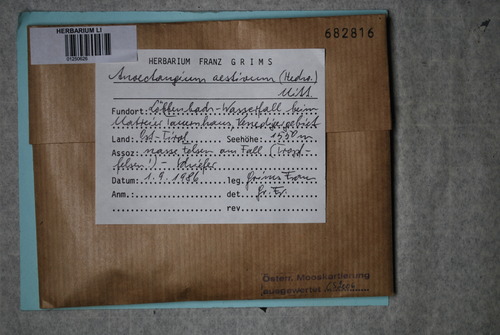 HERBARIUM LI
682816
HERBARIUM FRANZ GRIMS
Anoectangium aestivum (Hedw.)
Mitt.
Fundort: Löbbenbach-Wasserfall beim
Matreier Tauernhaus, Venedigergebiet
Land: Ost-Tirol Seehöhe: 1550 m
Assoz: nasse Felsen am Fall
felsen!) - Schiefer
Datum: 1.9.1986 leg. Grims Franz
Anm.: det. Gr. Fr.
rev.
Österr. Mooskartierung
ausgewertet